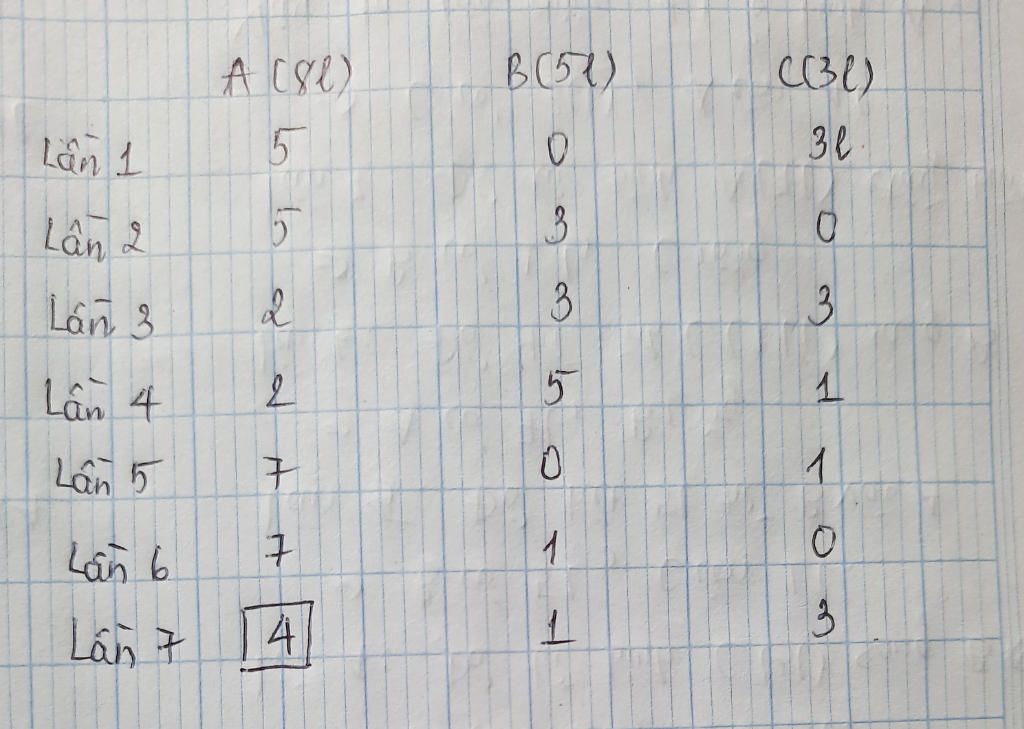 A (8l) B (5l) C (3l)
Lần 1 5 0 3l
Lần 2 5 3 0
Lần 3 2 3 3
Lần 4 2 5 1
Lần 5 7 0 1
Lần 6 7 1 0
Lần 7 4 1 3